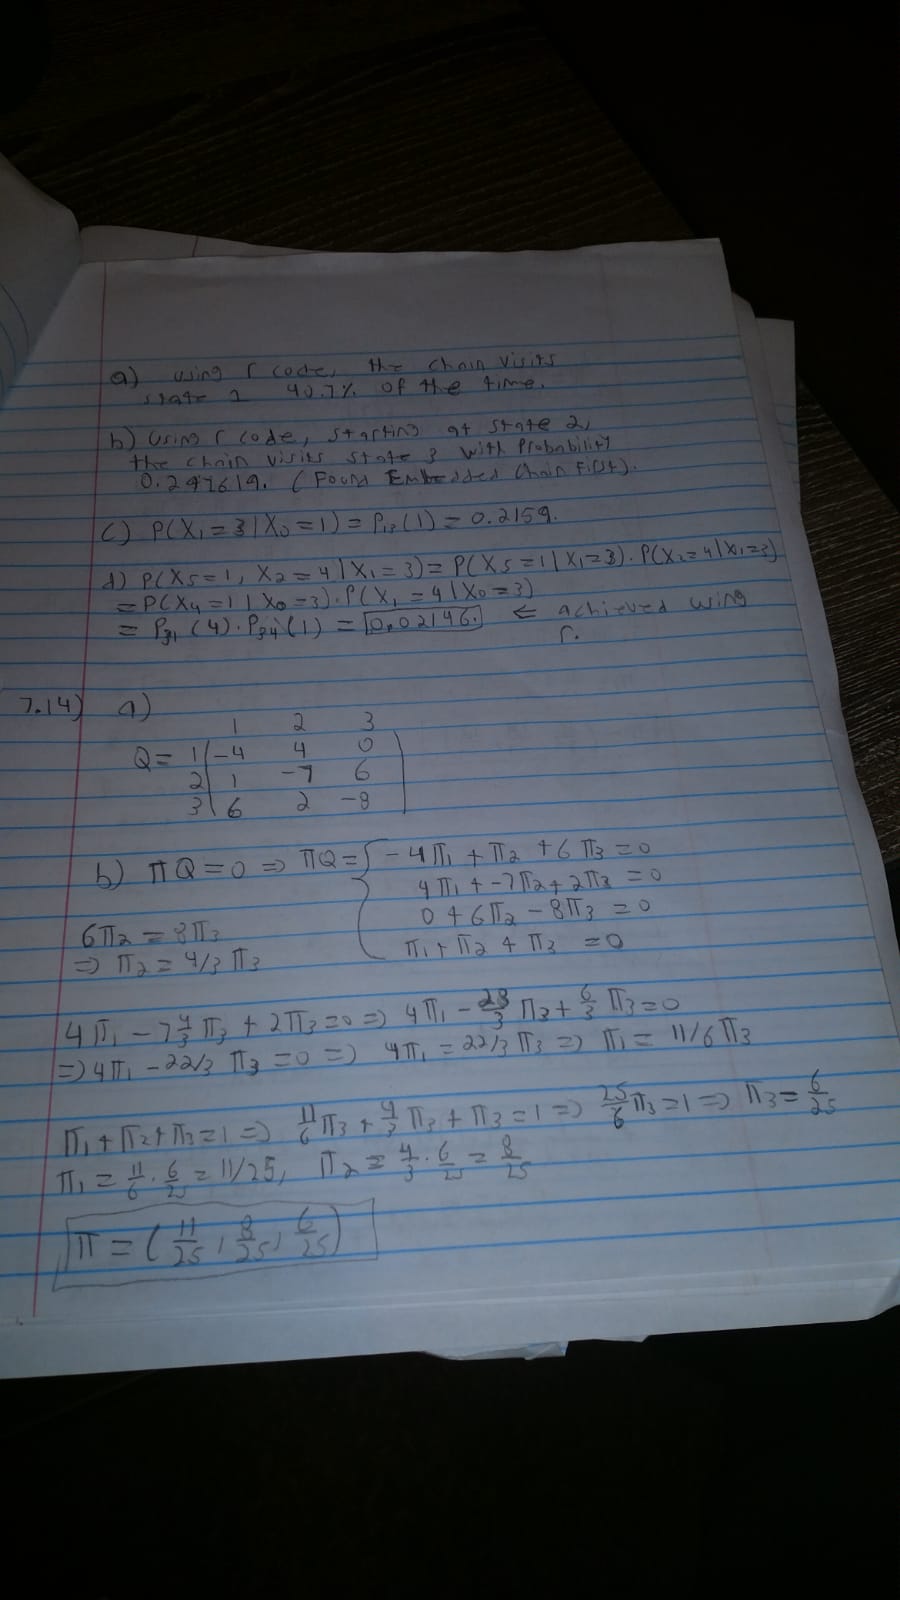 a) using r code, the chain visits
state 1 40.7% of the time.
b) Using r code, starting at state 2,
the chain visits state 3 with probability
0.297619. (Found Embedded Chain First).
c) P(X₁=3|X₀=1) = P₁₃(1) = 0.2159.
d) P(X₅=1, X₂=4|X₁=3) = P(X₅=1|X₁=3)·P(X₂=4|X₁=3)
= P(X₄=1|X₀=3)·P(X₁=4|X₀=3)
= P₃₁(4)·P₃₄(1) = 0.02146. ⇐ achieved using
r.
7.14) a)
1 2 3
Q= 1 -4 4 0
2 1 -7 6
3 6 2 -8
b) πQ=0 ⇒ πQ= { -4π₁ + π₂ + 6π₃ =0
4π₁ + -7π₂ + 2π₃ =0
0 + 6π₂ - 8π₃ =0
6π₂ = 8π₃ π₁ + π₂ + π₃ =0
⇒ π₂ = 4/3 π₃
4π₁ - 7 4/3 π₃ + 2π₃ =0 ⇒ 4π₁ - 28/3 π₃ + 6/3 π₃ =0
⇒ 4π₁ - 22/3 π₃ =0 ⇒ 4π₁ = 22/3 π₃ ⇒ π₁ = 11/6 π₃
π₁ + π₂ + π₃ =1 ⇒ 11/6 π₃ + 4/3 π₃ + π₃ =1 ⇒ 25/6 π₃ =1 ⇒ π₃ = 6/25
π₁ = 11/6 · 6/25 = 11/25, π₂ = 4/3 · 6/25 = 8/25
π = (11/25, 8/25, 6/25)